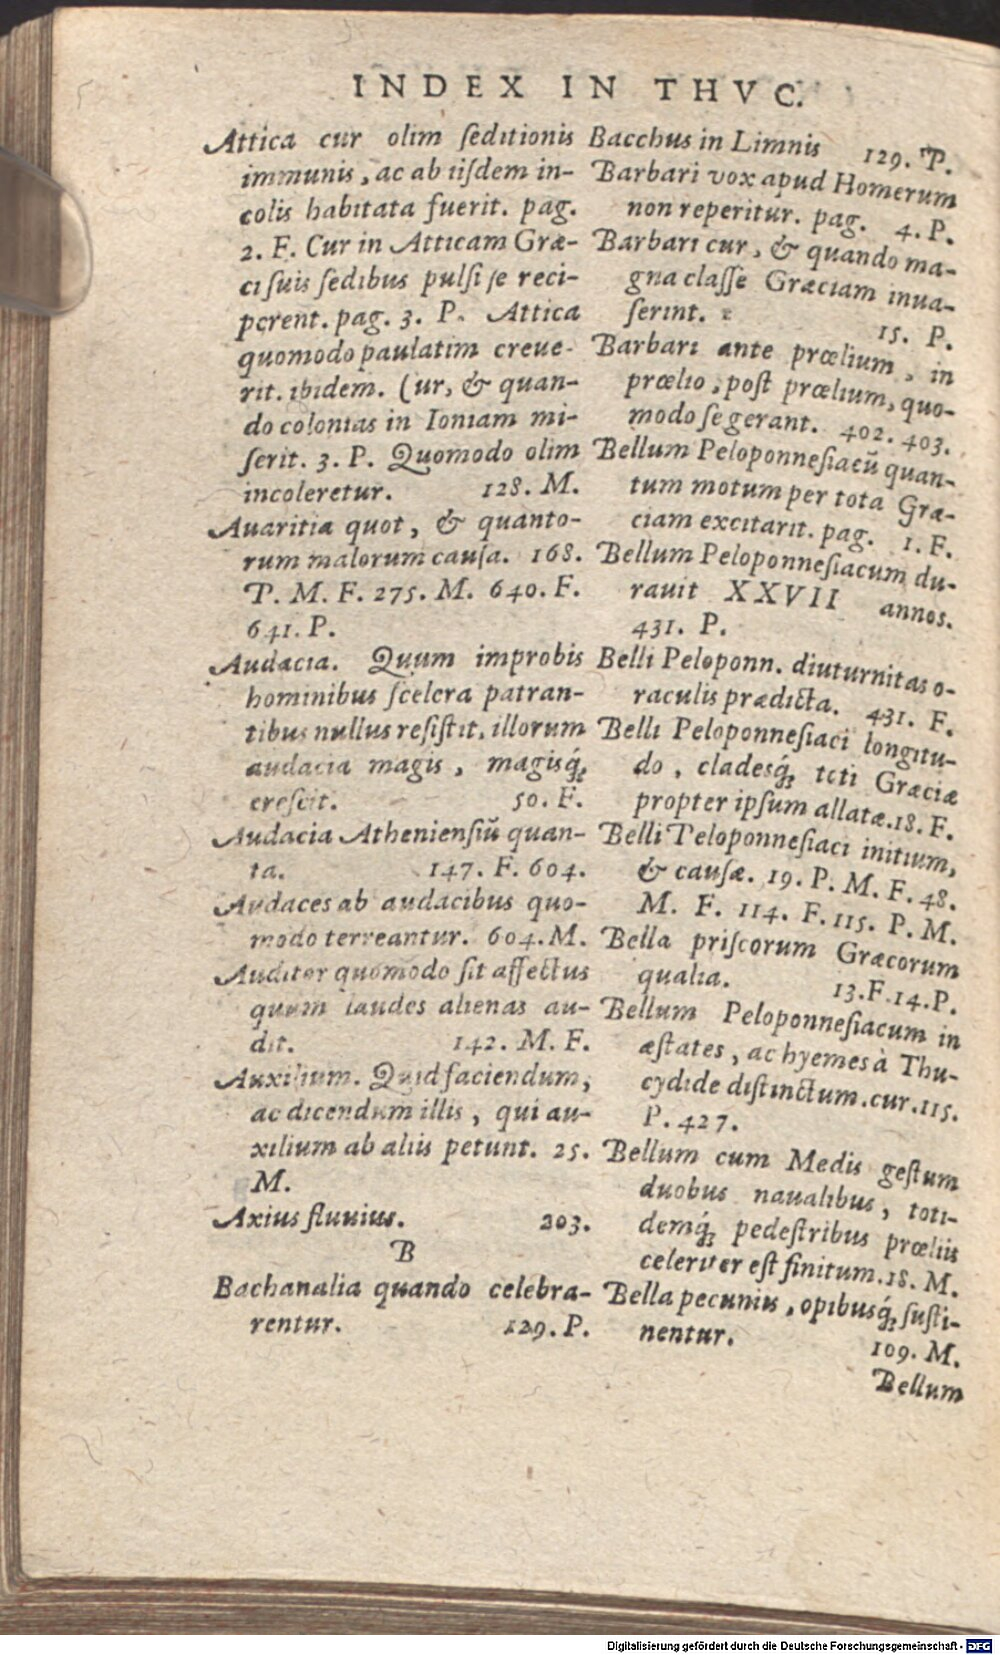 INDEX IN THVC.
Attica cur olim ſeditionis
immunis, ac ab iiſdem in-
colis habitata fuerit. pag.
2. F. Cur in Atticam Græ-
ci ſuis ſedibus pulſi ſe reci-
perent. pag. 3. P. Attica
quomodo paulatim creue-
rit. ibidem. Cur, & quan-
do colonias in Ioniam mi-
ſerit. 3. P. Quomodo olim
incoleretur. 128. M.
Auaritia quot, & quanto-
rum malorum cauſa. 168.
P. M. F. 275. M. 640. F.
641. P.
Audacia. Quum improbis
hominibus ſcelera patran-
tibus nullus reſiſtit, illorum
audacia magis, magisq́;
creſcit. 50. F.
Audacia Athenienſiũ quan-
ta. 147. F. 604.
Audaces ab audacibus quo-
modo terreantur. 604. M.
Auditor quomodo ſit affectus
quum laudes alienas au-
dit. 142. M. F.
Auxilium. Quid faciendum,
ac dicendum illis, qui au-
xilium ab aliis petunt. 25.
M.
Axius fluuius. 203.
B
Bachanalia quando celebra-
rentur. 129. P.
Bacchus in Limnis 129. P.
Barbari vox apud Homerum
non reperitur. pag. 4. P.
Barbari cur, & quando ma-
gna claſſe Græciam inua-
ſerint. 15. P.
Barbari ante prœlium, in
prœlio, poſt prœlium, quo-
modo ſe gerant. 402. 403.
Bellum Peloponneſiacũ quan-
tum motum per tota Græ-
ciam excitarit. pag. 1. F.
Bellum Peloponneſiacum du-
rauit XXVII annos.
431. P.
Belli Peloponn. diuturnitas o-
raculis prædicta. 431. F.
Belli Peloponneſiaci longitu-
do, cladesq́; toti Græciæ
propter ipſum allatæ. 18. F.
Belli Peloponneſiaci initium,
& cauſæ. 19. P. M. F. 48.
M. F. 114. F. 115. P. M.
Bella priſcorum Græcorum
qualia. 13. F. 14. P.
Bellum Peloponneſiacum in
æſtates, ac hyemes à Thu-
cydide diſtinctum. cur. 115.
P. 427.
Bellum cum Medis geſtum
duobus naualibus, toti-
demq́; pedeſtribus prœliis
celeriter eſt finitum. 18. M.
Bella pecuniis, opibusq́; ſuſti-
nentur. 109. M.
Bellum
Digitalisierung gefördert durch die Deutsche Forschungsgemeinschaft - DFG